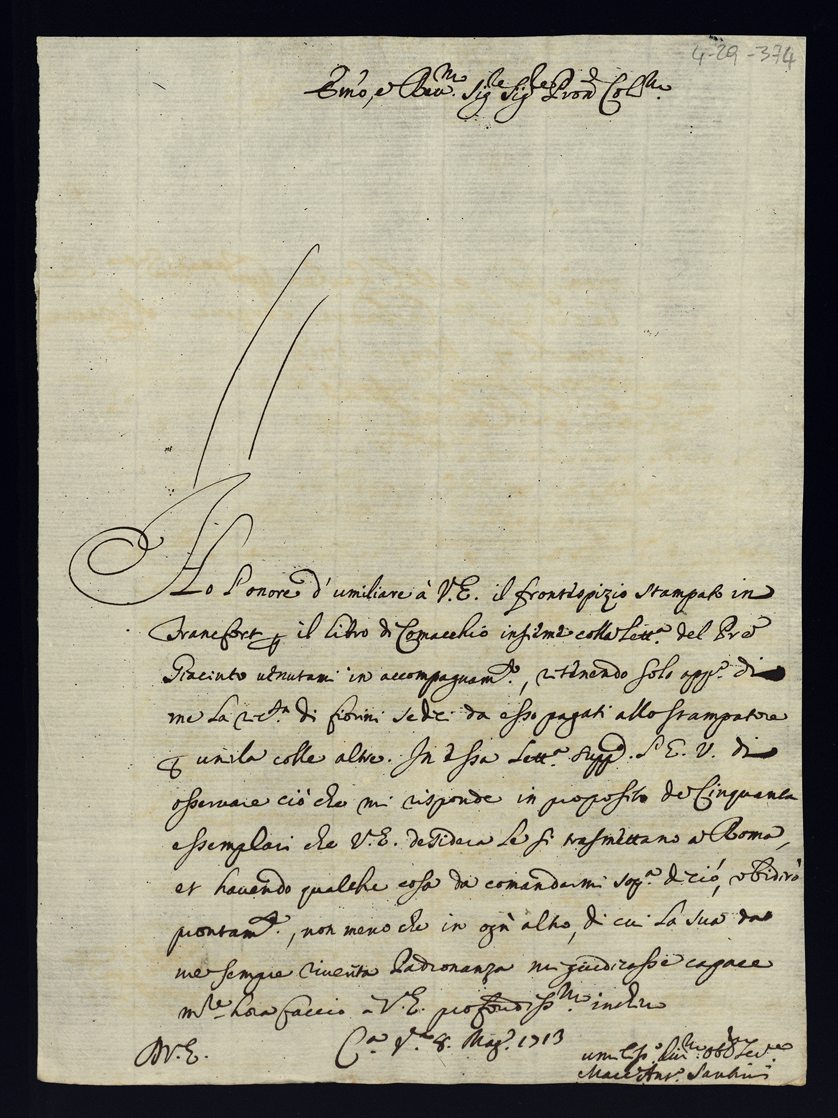 4-29-374
Emo, e Reu.mo Sig.re Sig.re Pron. Col.mo
Ho l'onore d'umiliare à V.E. il frontispizio stampato in
Francfort p il libro di Comacchio insieme colla Lett.a del Pre
Giacinto uenutami in accompagnam.to, ritenendo solo app.o di
me la ric.ta di fiorini sedeci da esso pagati allo stampatore
p unirla colle altre. In essa Lett.a supp.o l'E.V. di
osseruare ciò che mi risponde in proposito de Cinquanta
essemplari che V.E. desidera le si trasmettano a Roma,
et hauendo qualche cosa da comandarmi sop.a di ciò, obidirò
prontam.te, non meno che in ogn' altro, di cui la sua da
me sempre riuerita Padronanza mi giudicasse capace
m.re hora faccio a V.E. profondiss.mo inchino
D V.E. C.a V.a 8. Mag.o 1713
umiliss.o diu.mo obb.mo Ser.re